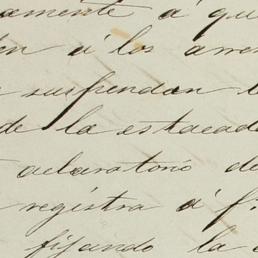 amente á qu
en á los arren
suspendan l
de la estacad
aclaratorio de
registra á f
fijando la